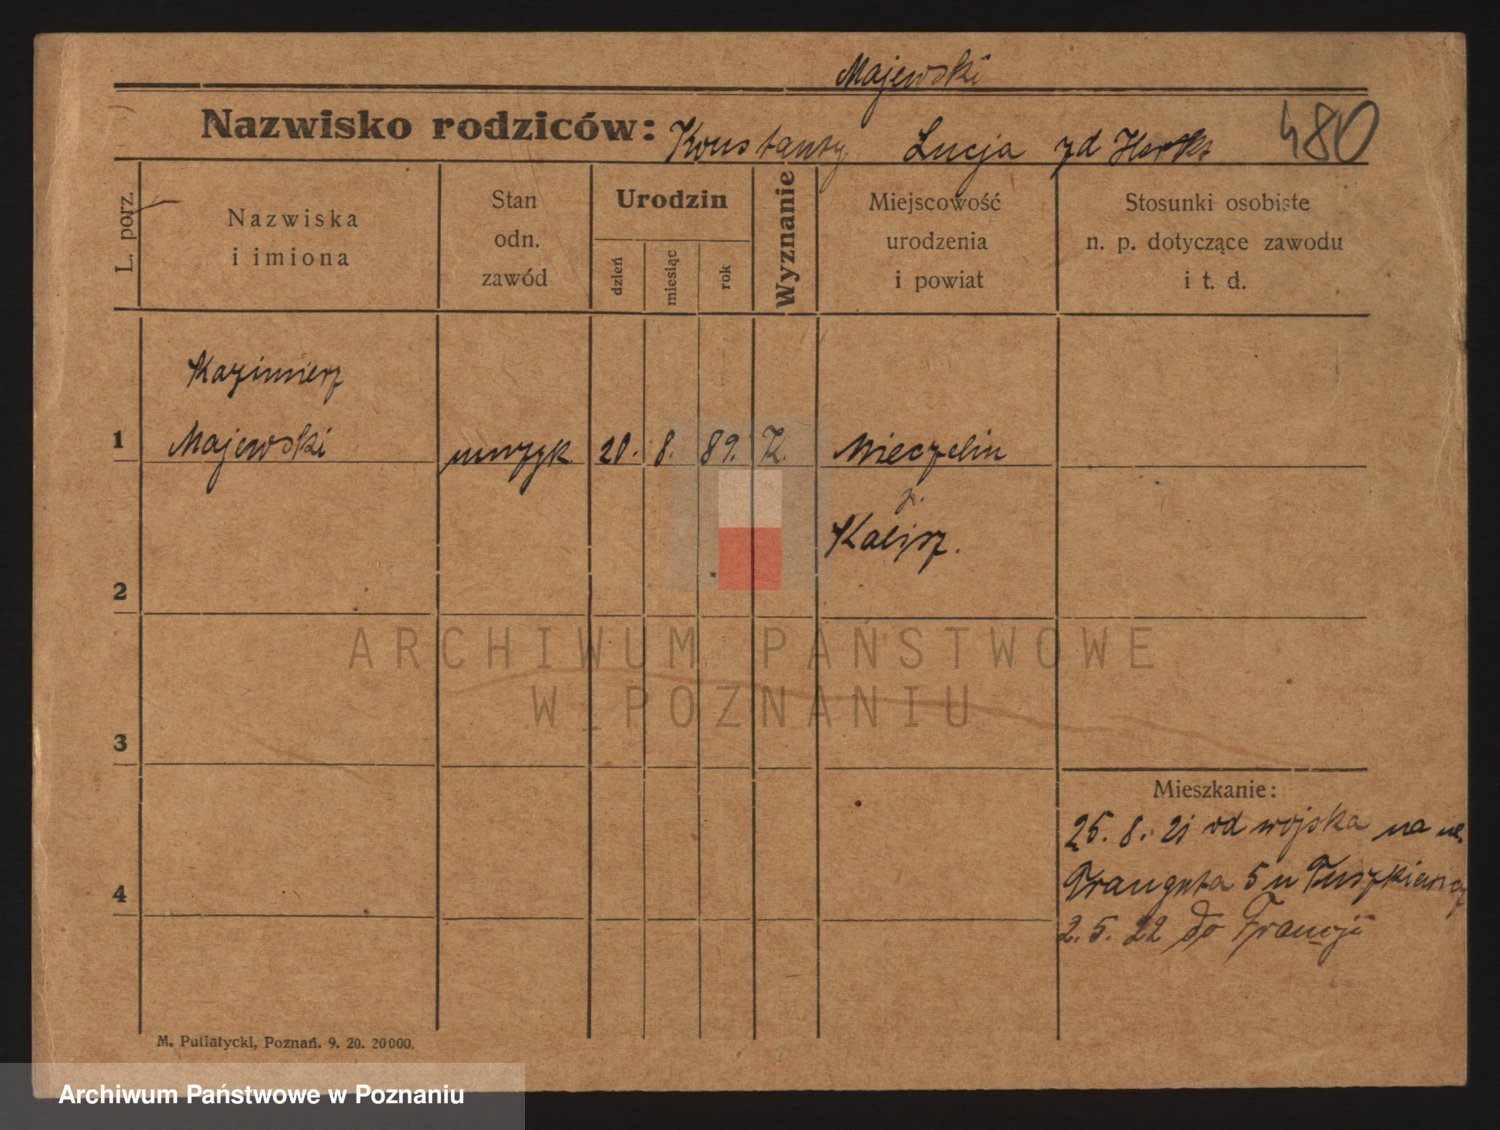 Majewski
Nazwisko rodziców: Konstanty Łucja zd 480
L. porz.
Nazwiska i imiona
Stan odn. zawód
Urodzin
dzień
miesiąc
rok
Wyznanie
Miejscowość urodzenia i powiat
Stosunki osobiste n. p. dotyczące zawodu i t. d.
Kazimierz
1 Majewski muzyk 20. 8. 89. K. Mieczelin
p.
Kalisz.
2
3
4
Mieszkanie:
25. 8. 21 od wojska na ul.
Traugutta 5 u
2. 5. 22 do Francji
M. Putiatycki, Poznań. 9. 20. 20000.
ARCHIWUM PAŃSTWOWE
W POZNANIU
Archiwum Państwowe w Poznaniu